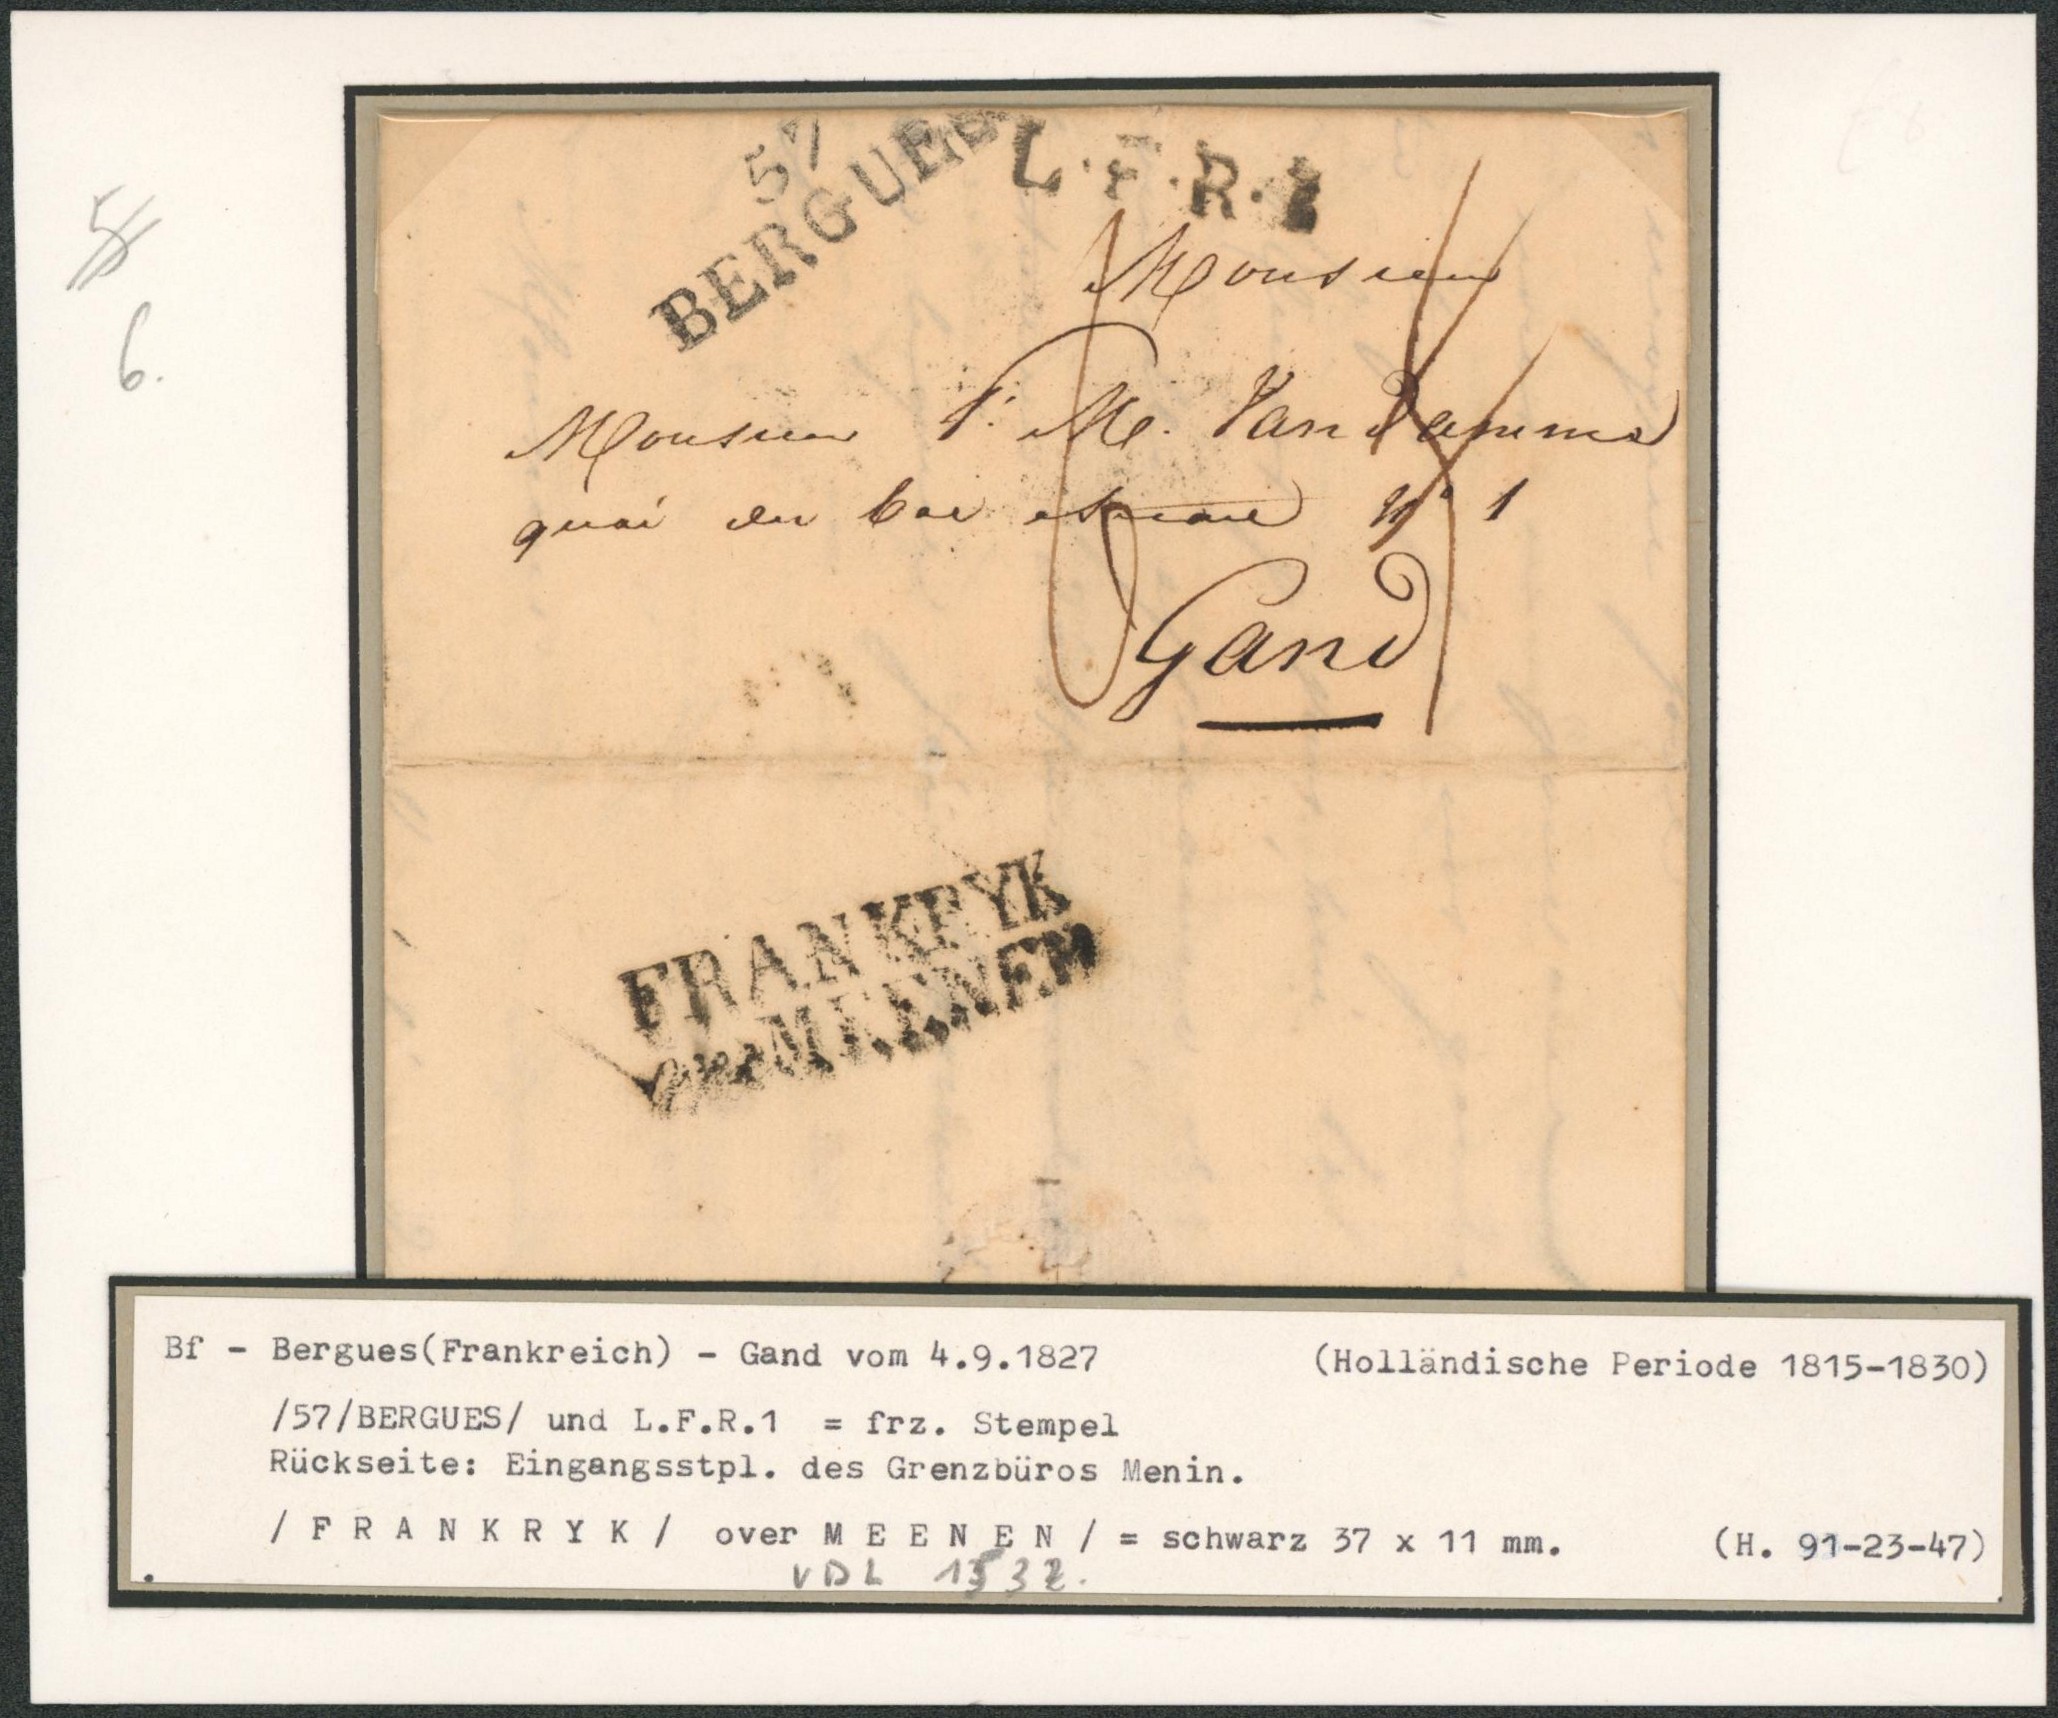 5
6.
57
BERGUES
L.F.R.1
Monsieur
Monsieur F. M. Van Damme
quai du bas n° 1
Gand
FRANKRYK
over MEENEN
Bf - Bergues(Frankreich) - Gand vom 4.9.1827 (Holländische Periode 1815-1830)
/57/BERGUES/ und L.F.R.1 = frz. Stempel
Rückseite: Eingangsstpl. des Grenzbüros Menin.
/ F R A N K R Y K / over M E E N E N / = schwarz 37 x 11 mm. (H. 91-23-47)
VDL 1532.